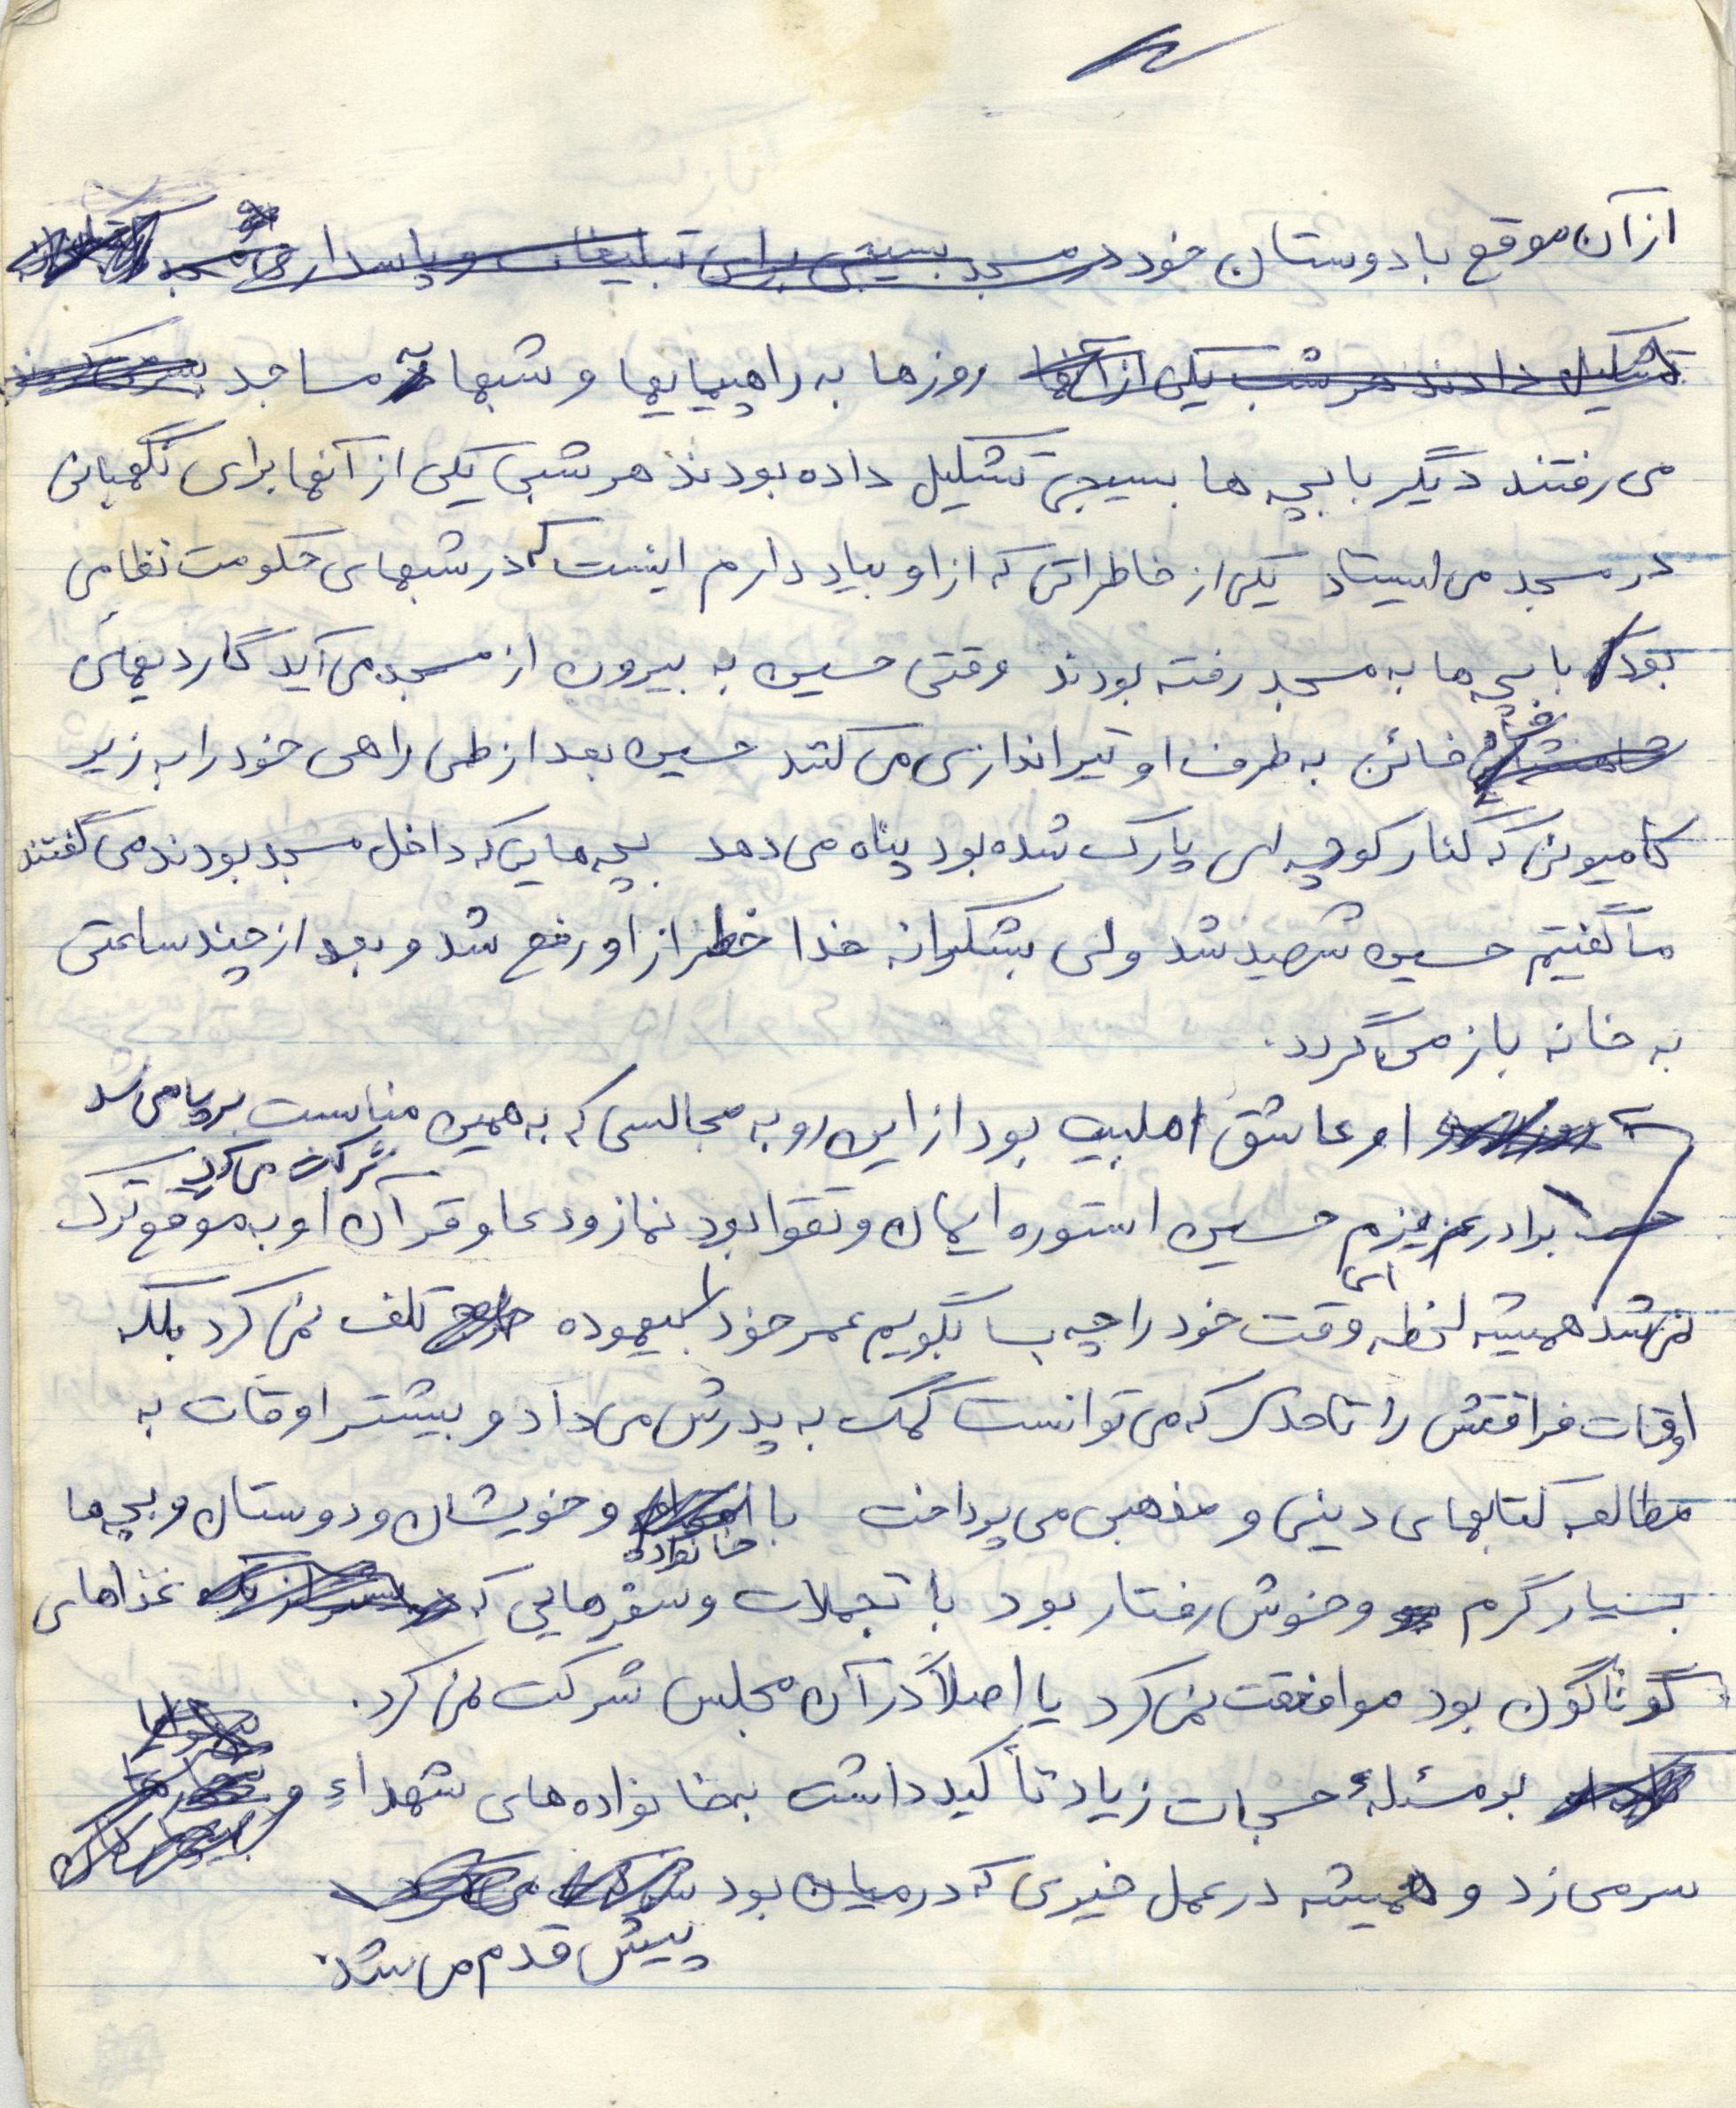 از آن موقع با دوستان خود در مسجد بسیجی برای تبلیغات و پاسداری
تشکیل دادند هر شب یکی از آنها روزها به راهپیمایها و شبها به مساجد
می رفتند دیگر با بچه ها بسیجی تشکیل داده بودند هر شبی یکی از آنها برای نگهبانی
در مسجد می ایستاد یکی از خاطراتی که از او بیاد دارم اینست که در شبهای حکومت نظامی
بود با بچه ها به مسجد رفته بودند وقتی حسین به بیرون از مسجد می آید گاردیهائی
خائن به طرف او تیراندازی می کنند حسین بعد از طی راهی خود را به زیر
کامیونی که کنار کوچه ای پارک شده بود پناه می دهد بچه هایی که داخل مسجد بودند می گفتند
ما گفتیم حسین شهید شد ولی بشکرانه خدا خطر از او رفع شد و بعد از چند ساعتی
به خانه باز می گردد.
او عاشق اهلبیت بود از این رو به مجالسی که به همین مناسبت برپا می شد
شرکت می کرد
برادر عزیزم حسین استوره ایمان و تقوا بود نماز و دعا و قرآن او به موقع ترک
نمی شد همیشه لحظه ای وقت خود را چه بسا بگویم عمر خود را بیهوده تلف نمی کرد بلکه
اوقات فراقتش را تا حدی که می توانست کمک به پدرش می داد و بیشتر اوقات به
مطالعه کتابهای دینی و مذهبی می پرداخت با خانواده و خویشان و دوستان و بچه ها
بسیار گرم و خوش رفتار بود با تجملات و سفرهایی که غذاهای
گوناگون بود موافقت نمی کرد یا اصلاً در آن مجلس شرکت نمی کرد.
بر مسئلهٔ حجاب زیاد تأکید داشت بخانواده های شهداء
سر می زد و همیشه در عمل خیری که در میان بود
پیش قدم می شد.